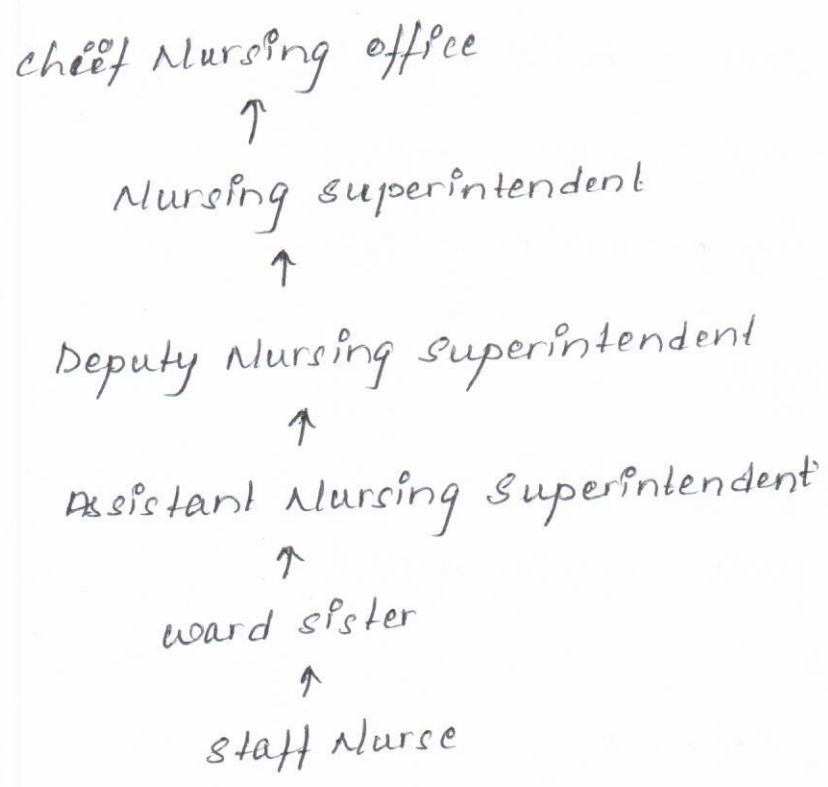 chief Nursing office
↑
Nursing superintendent
↑
Deputy Nursing superintendent
↑
Assistant Nursing superintendent
↑
ward sister
↑
staff Nurse